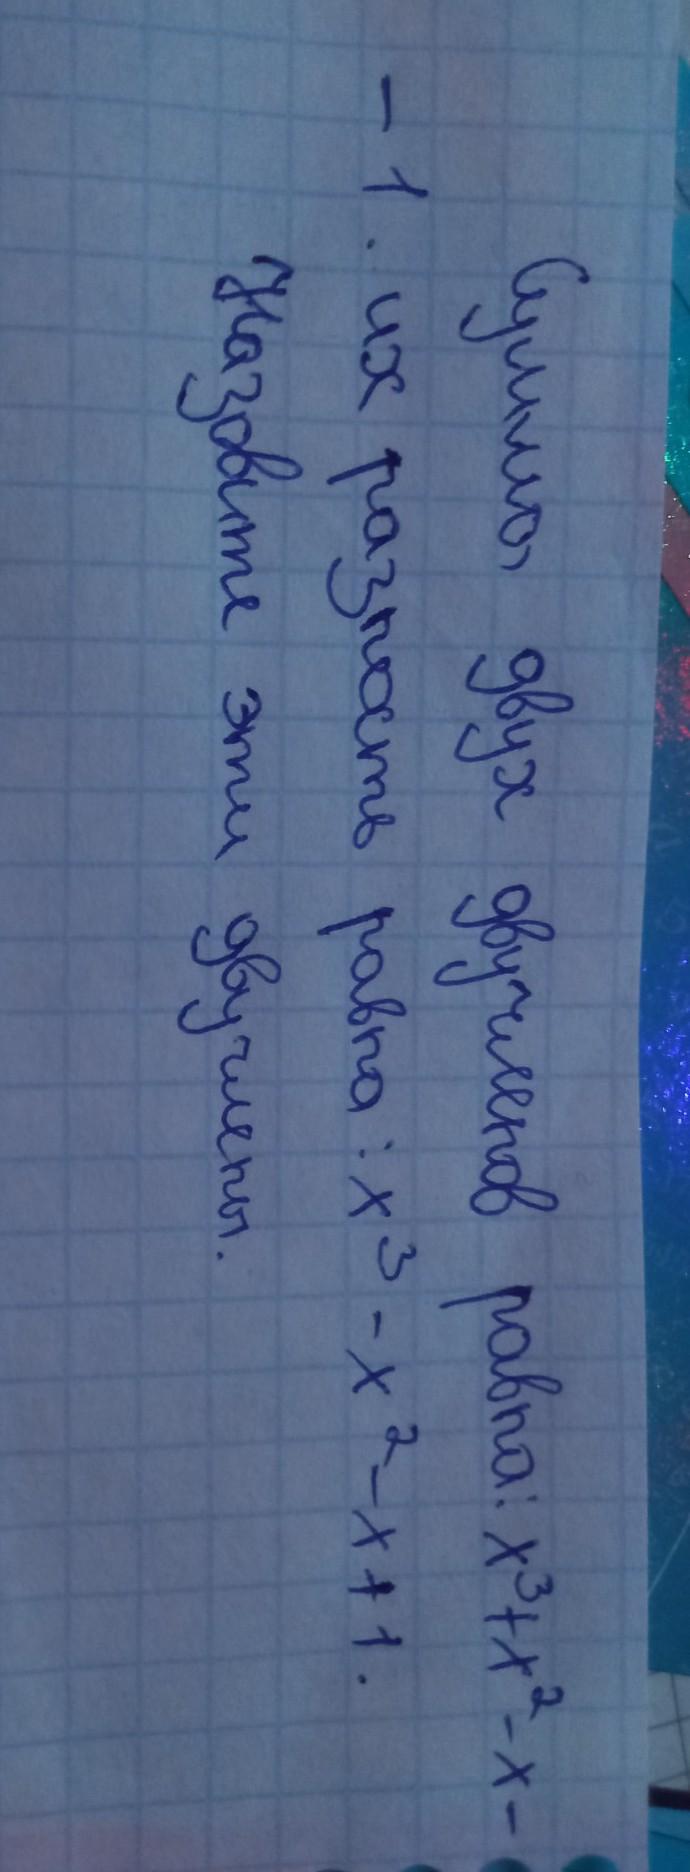 Сумма двух двучленов равна: x³+x²-x-
-1. их разность равна: x³-x²-x+1.
Назовите эти двучлены.